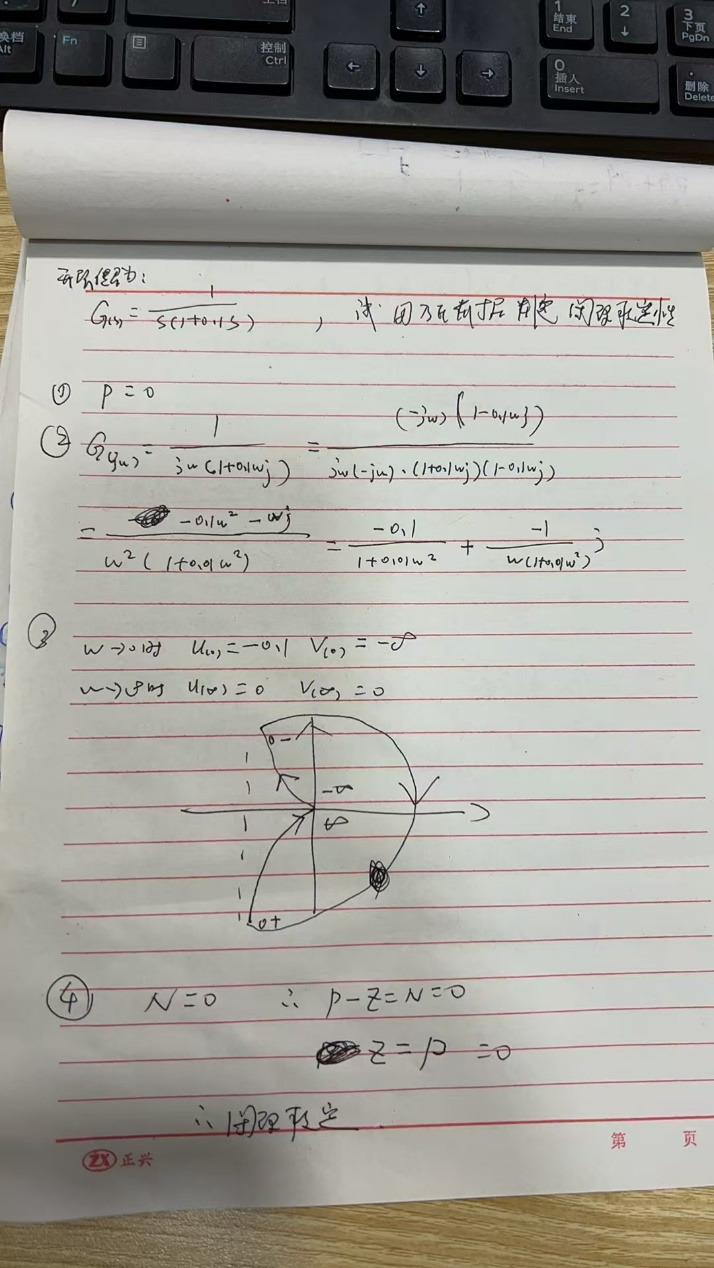 换档
Alt
Fn
控制
Ctrl
↑
← ↓ →
1
结束
End
2
↓
3
下页
PgDn
0
插入
Insert
.
删除
Delete
开环传函为:
G(s) = 1/(s(1+0.1s)) , 试用乃氏判据判定闭环稳定性
① P = 0
② G(jw) = 1/(jw(1+0.1wj)) = (-jw)(1-0.1wj)/(jw(-jw)·(1+0.1wj)(1-0.1wj))
= (-0.1w² - wj)/(w²(1+0.01w²)) = -0.1/(1+0.01w²) + -1/(w(1+0.01w²)) j
③
w→0时 U(0) = -0.1 V(0) = -∞
w→∞时 U(∞) = 0 V(∞) = 0
0-
-∞
∞
0+
④ N=0 ∴ P-Z=N=0
Z = P = 0
∴ 闭环稳定.
ZX 正兴
第 页